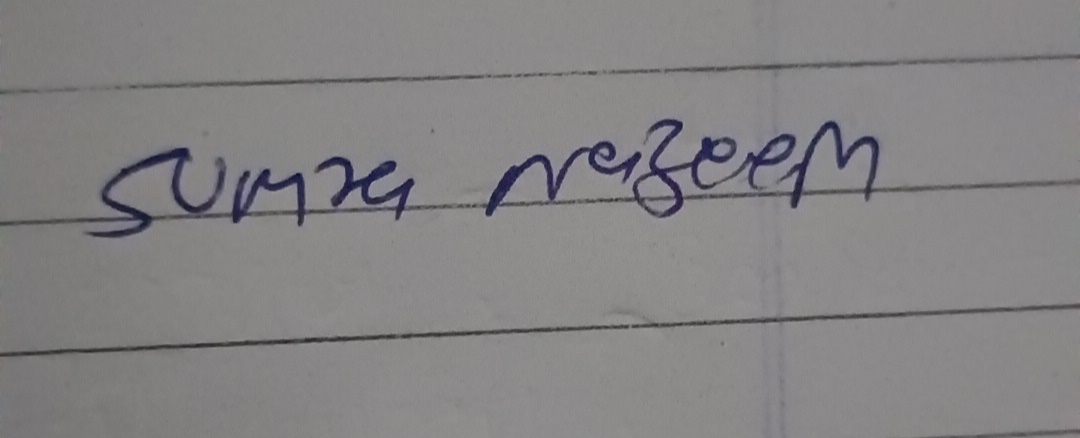 Sumra nazeem